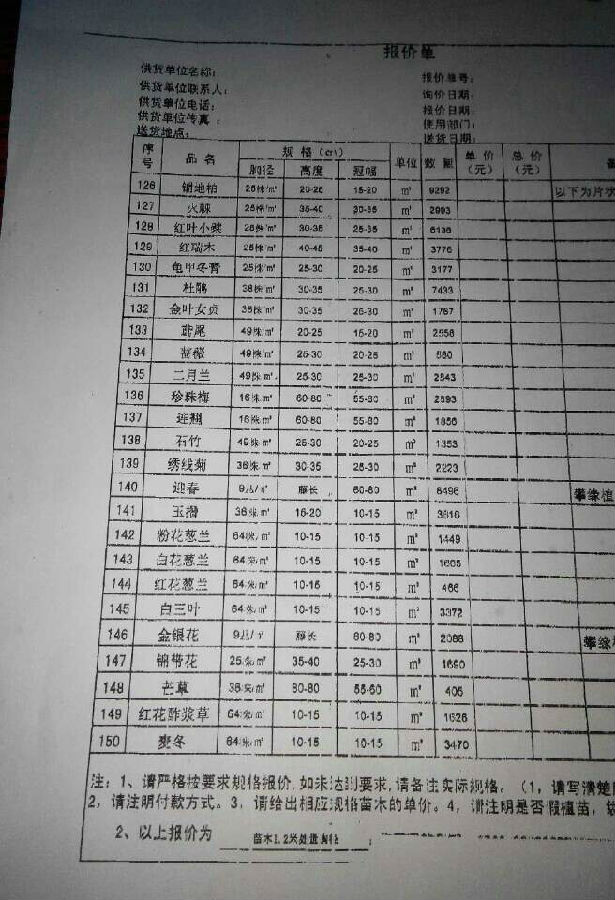 报价单
供货单位名称：
报价单号：
供货单位联系人：
询价日期：
供货单位电话：
报价日期：
供货单位传真：
使用部门：
送货地点：
送货日期：
序号 品名 规格（cm） 单位 数量 单价（元） 总价（元）
胸径 高度 冠幅
126 铺地柏 25株/m² 20-25 15-20 m² 9292 以下为片状
127 火棘 25株/m² 35-40 30-35 m² 2993
128 红叶小檗 25株/m² 30-35 25-35 m² 6136
129 红瑞木 25株/m² 40-45 35-40 m² 3776
130 龟甲冬青 25株/m² 25-30 20-25 m² 3177
131 杜鹃 36株/m² 30-35 25-30 m² 7433
132 金叶女贞 36株/m² 30-35 25-30 m² 1767
133 鸢尾 49株/m² 20-25 15-20 m² 2556
134 49株/m² 25-30 20-25 m²
135 二月兰 49株/m² 25-30 25-30 m² 2843
136 珍珠梅 16株/m² 60-80 55-80 m² 2893
137 连翘 16株/m² 60-80 55-80 m² 1856
138 石竹 25-30 20-25 m² 1353
139 绣线菊 36株/m² 30-35 25-30 m² 2223
140 迎春 藤长 60-80 m² 6496 攀缘植
141 玉簪 36株/m² 15-20 10-15 m² 3816
142 粉花葱兰 64株/m² 10-15 10-15 m² 1449
143 白花葱兰 64株/m² 10-15 10-15 m² 1605
144 红花葱兰 64株/m² 10-15 10-15 m² 466
145 白三叶 64株/m² 10-15 10-15 m² 3372
146 金银花 藤长 60-80 m² 2088 攀缘植
147 锦带花 25株/m² 35-40 25-30 m² 1690
148 芒草 36株/m² 60-80 55-60 m² 406
149 红花酢浆草 64株/m² 10-15 10-15 m² 1626
150 麦冬 64株/m² 10-15 10-15 m² 3470
注：1、请严格按要求规格报价，如未达到要求，请备注实际规格，（1，请写清楚
2，请注明付款方式。3，请给出相应规格苗木的单价。4，请注明是否假植苗，
2、以上报价为 苗木1.2米处量胸径